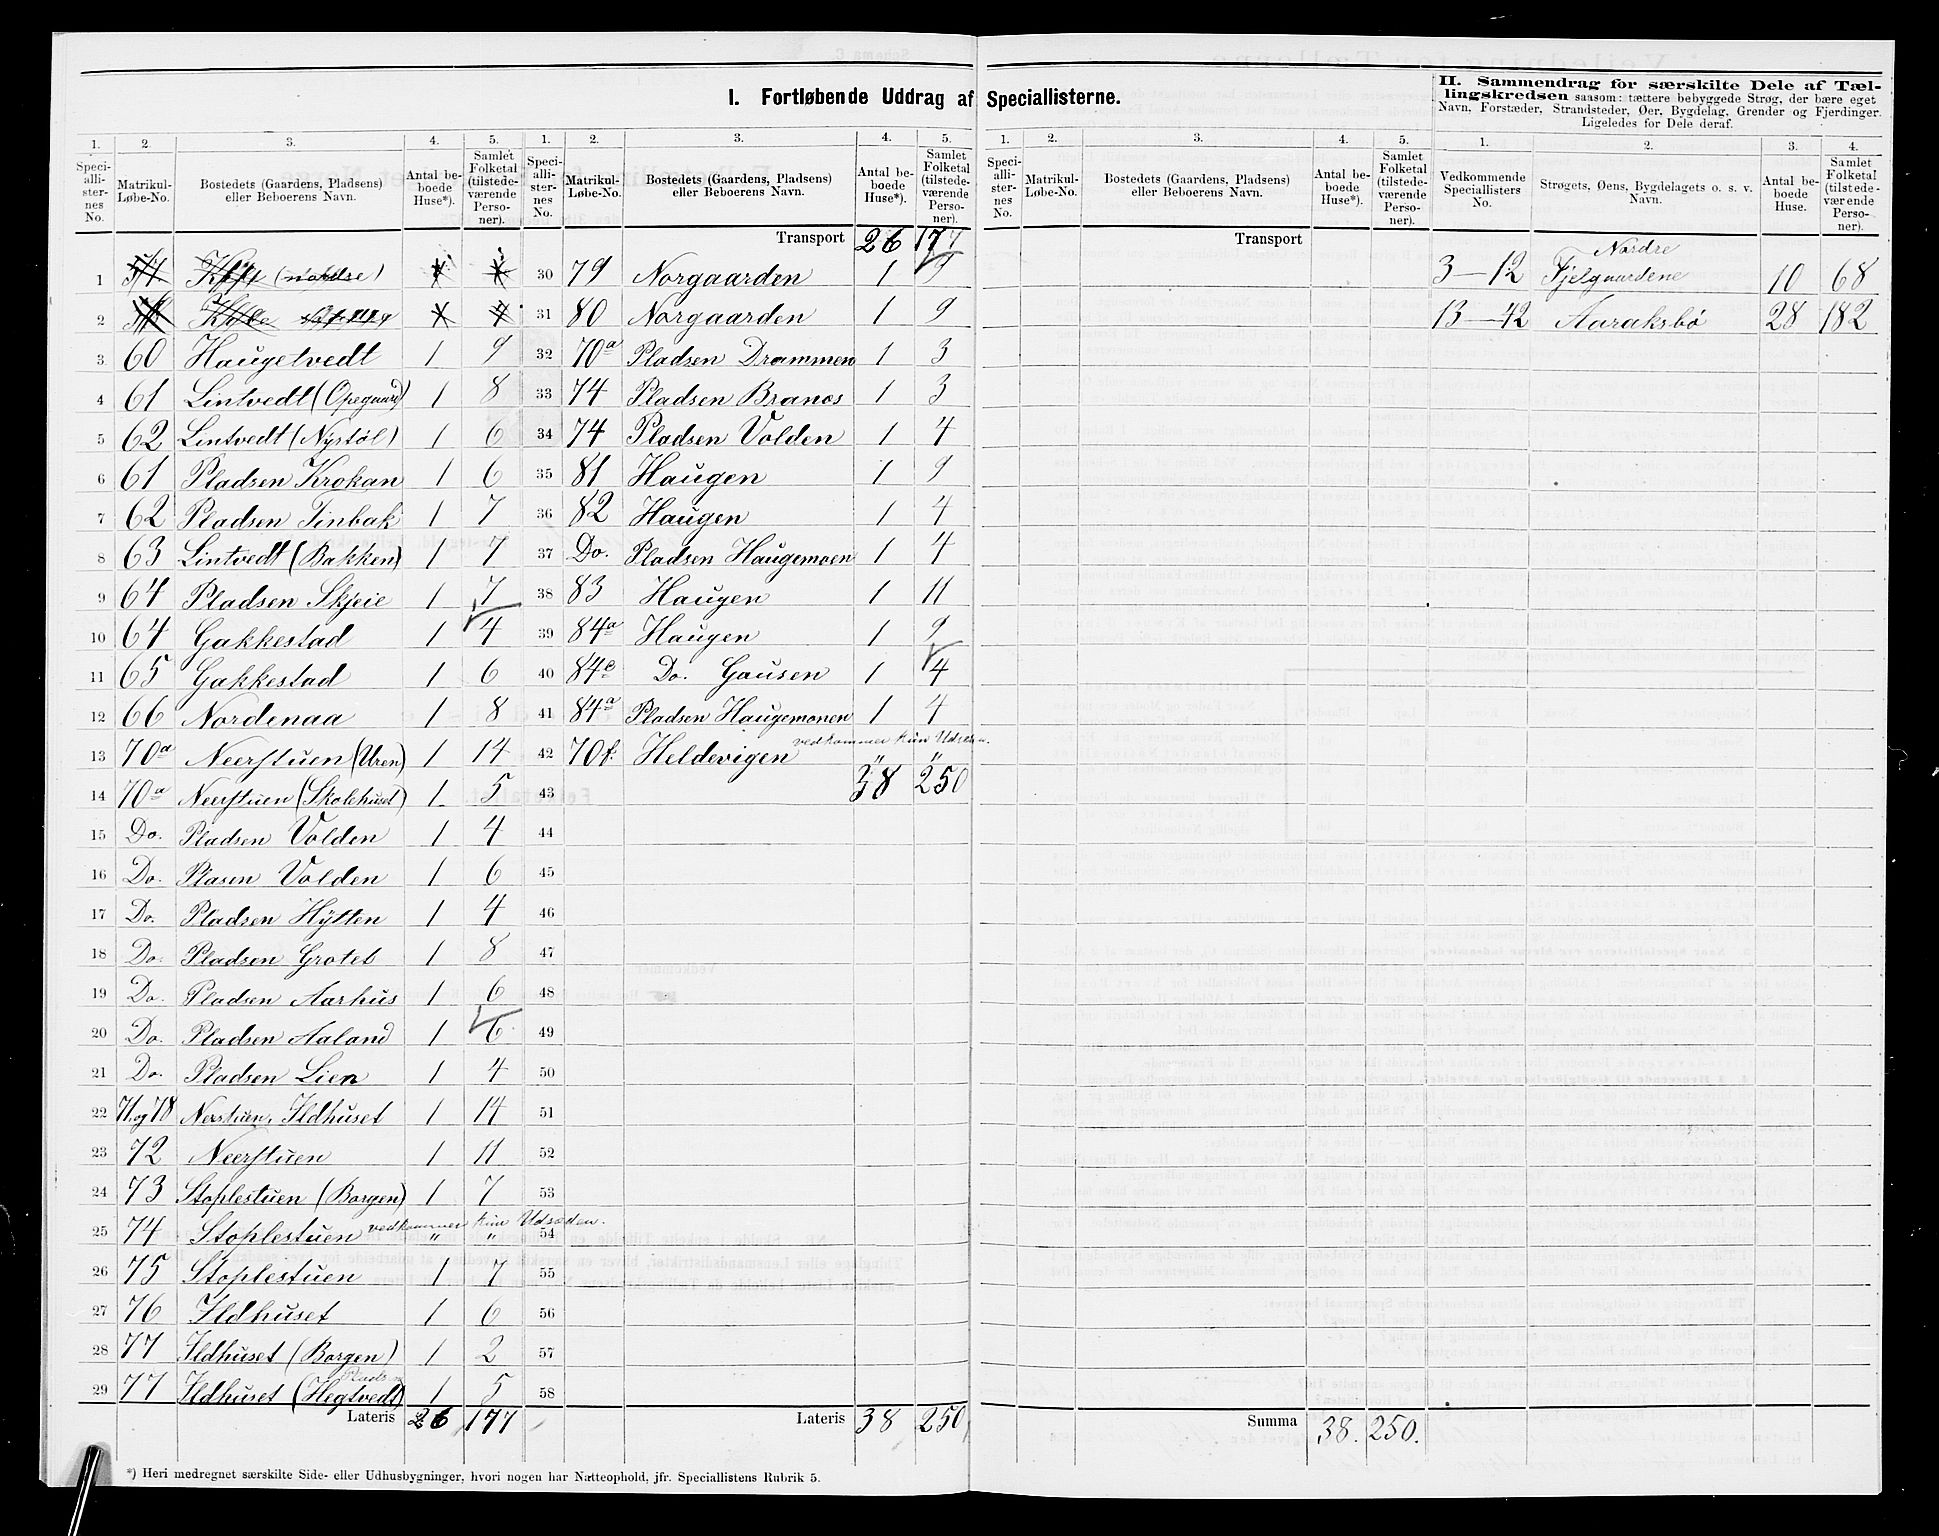 I. Fortløbende Uddrag af Speciallisterne.
II. Sammendrag for særskilte Dele af Tæl-
lingskredsen saasom: tættere bebyggede Strøg, der bære eget
Navn, Forstæder, Strandsteder, Øer, Bygdelag, Grender og Fjerdinger.
Ligeledes for Dele deraf.
1. 2. 3. 4. 5. 1. 2. 3. 4. 5. 1. 2. 3. 4. 5. 1. 2. 3. 4.
Speci-allister-nes No. Matrikul-Løbe-No. Bostedets (Gaardens, Pladsens) eller Beboerens Navn. Antal be-boede Huse*). Samlet Folketal (tilstede-værende Perso-ner).
Speci-allister-nes No. Matrikul-Løbe-No. Bostedets (Gaardens, Pladsens) eller Beboerens Navn. Antal be-boede Huse*). Samlet Folketal (tilstede-værende Perso-ner).
Speci-allister-nes No. Matrikul-Løbe-No. Bostedets (Gaardens, Pladsens) eller Beboerens Navn. Antal be-boede Huse*). Samlet Folketal (tilstede-værende Perso-ner).
Vedkommende Speciallisters No. Strøgets, Øens, Bygdelagets o. s. v. Navn. Antal be-boede Huse. Samlet Folketal (tilstede-værende Perso-ner).
1 (nordre)
2
3 60 Haugetvedt 1 9
4 61 Lintvedt (Opegaard) 1 8
5 62 Lintvedt (Nystøl) 1 6
6 61 Pladsen Krokan 1 6
7 62 Pladsen Tinbak 1 7
8 63 Lintvedt (Bakken) 1 7
9 64 Pladsen Skjeie 1 7
10 64 Gakkestad 1 4
11 65 Gakkestad 1 6
12 66 Nordenaa 1 8
13 70a Neerstuen (Uren) 1 14
14 70a Neerstuen (Skolehuset) 1 5
15 Do. Pladsen Volden 1 4
16 Do. Plasen Volden 1 6
17 Do. Pladsen Hÿtten 1 4
18 Do. Pladsen Groteb 1 8
19 Do. Pladsen Aarhus 1 6
20 Do. Pladsen Aaland 1 6
21 Do. Pladsen Lien 1 4
22 71 og 78 Nerstuen, Ildhuset 1 14
23 72 Neerstuen 1 11
24 73 Stoplestuen (Borgen) 1 7
25 74 Stoplestuen vedkommer kun Udsæden. " "
26 75 Stoplestuen 1 7
27 76 Ildhuset 1 6
28 77 Ildhuset (Borgen) 1 2
29 77 Ildhuset (Plads Hegtvedt) 1 5
Lateris 26 177
Transport 26 177
30 79 Norgaarden 1 9
31 80 Norgaarden 1 9
32 70a Pladsen Drammen 1 3
33 74 Pladsen Branes 1 3
34 74 Pladsen Volden 1 4
35 81 Haugen 1 9
36 82 Haugen 1 4
37 Do. Pladsen Haugemoen 1 4
38 83 Haugen 1 11
39 84a Haugen 1 9
40 84c Do. Gausen 1 4
41 84a Pladsen Haugemonen 1 4
42 70f. Heldevigen vedkommer kun Udsæden. " "
43 38 250
44
45
46
47
48
49
50
51
52
53
54
55
56
57
58
Lateris 38 250
Transport
Summa 38. 250.
3—12 Nordre Fjelgaardene 10 68
13—42 Aaraksbø 28 182
*) Heri medregnet særskilte Side- eller Udhusbygninger, hvori nogen har Natteophold, jfr. Speciallistens Rubrik 5.